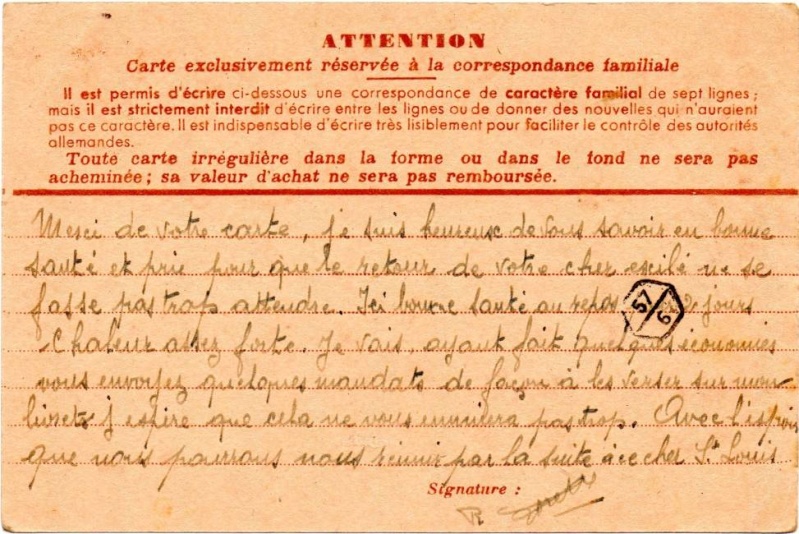 ATTENTION
Carte exclusivement réservée à la correspondance familiale
Il est permis d'écrire ci-dessous une correspondance de caractère familial de sept lignes ;
mais il est strictement interdit d'écrire entre les lignes ou de donner des nouvelles qui n'auraient
pas ce caractère. Il est indispensable d'écrire très lisiblement pour faciliter le contrôle des autorités
allemandes.
Toute carte irrégulière dans la forme ou dans le fond ne sera pas
acheminée ; sa valeur d'achat ne sera pas remboursée.
Merci de votre carte, je suis heureuse de vous savoir en bonne
santé et prie pour que le retour de votre cher exilé ne se
fasse pas trop attendre. Ici bonne santé au repos 2 jours
57
69
Chaleur assez forte. Je vais, ayant fait quelques économies
vous envoyez quelques mandats de façon à les verser sur mon
livret, j espère que cela ne vous ennuiera pas trop. Avec l'espoir
que nous pourrons nous réunir par la suite à ce cher St Louis
Signature :
R